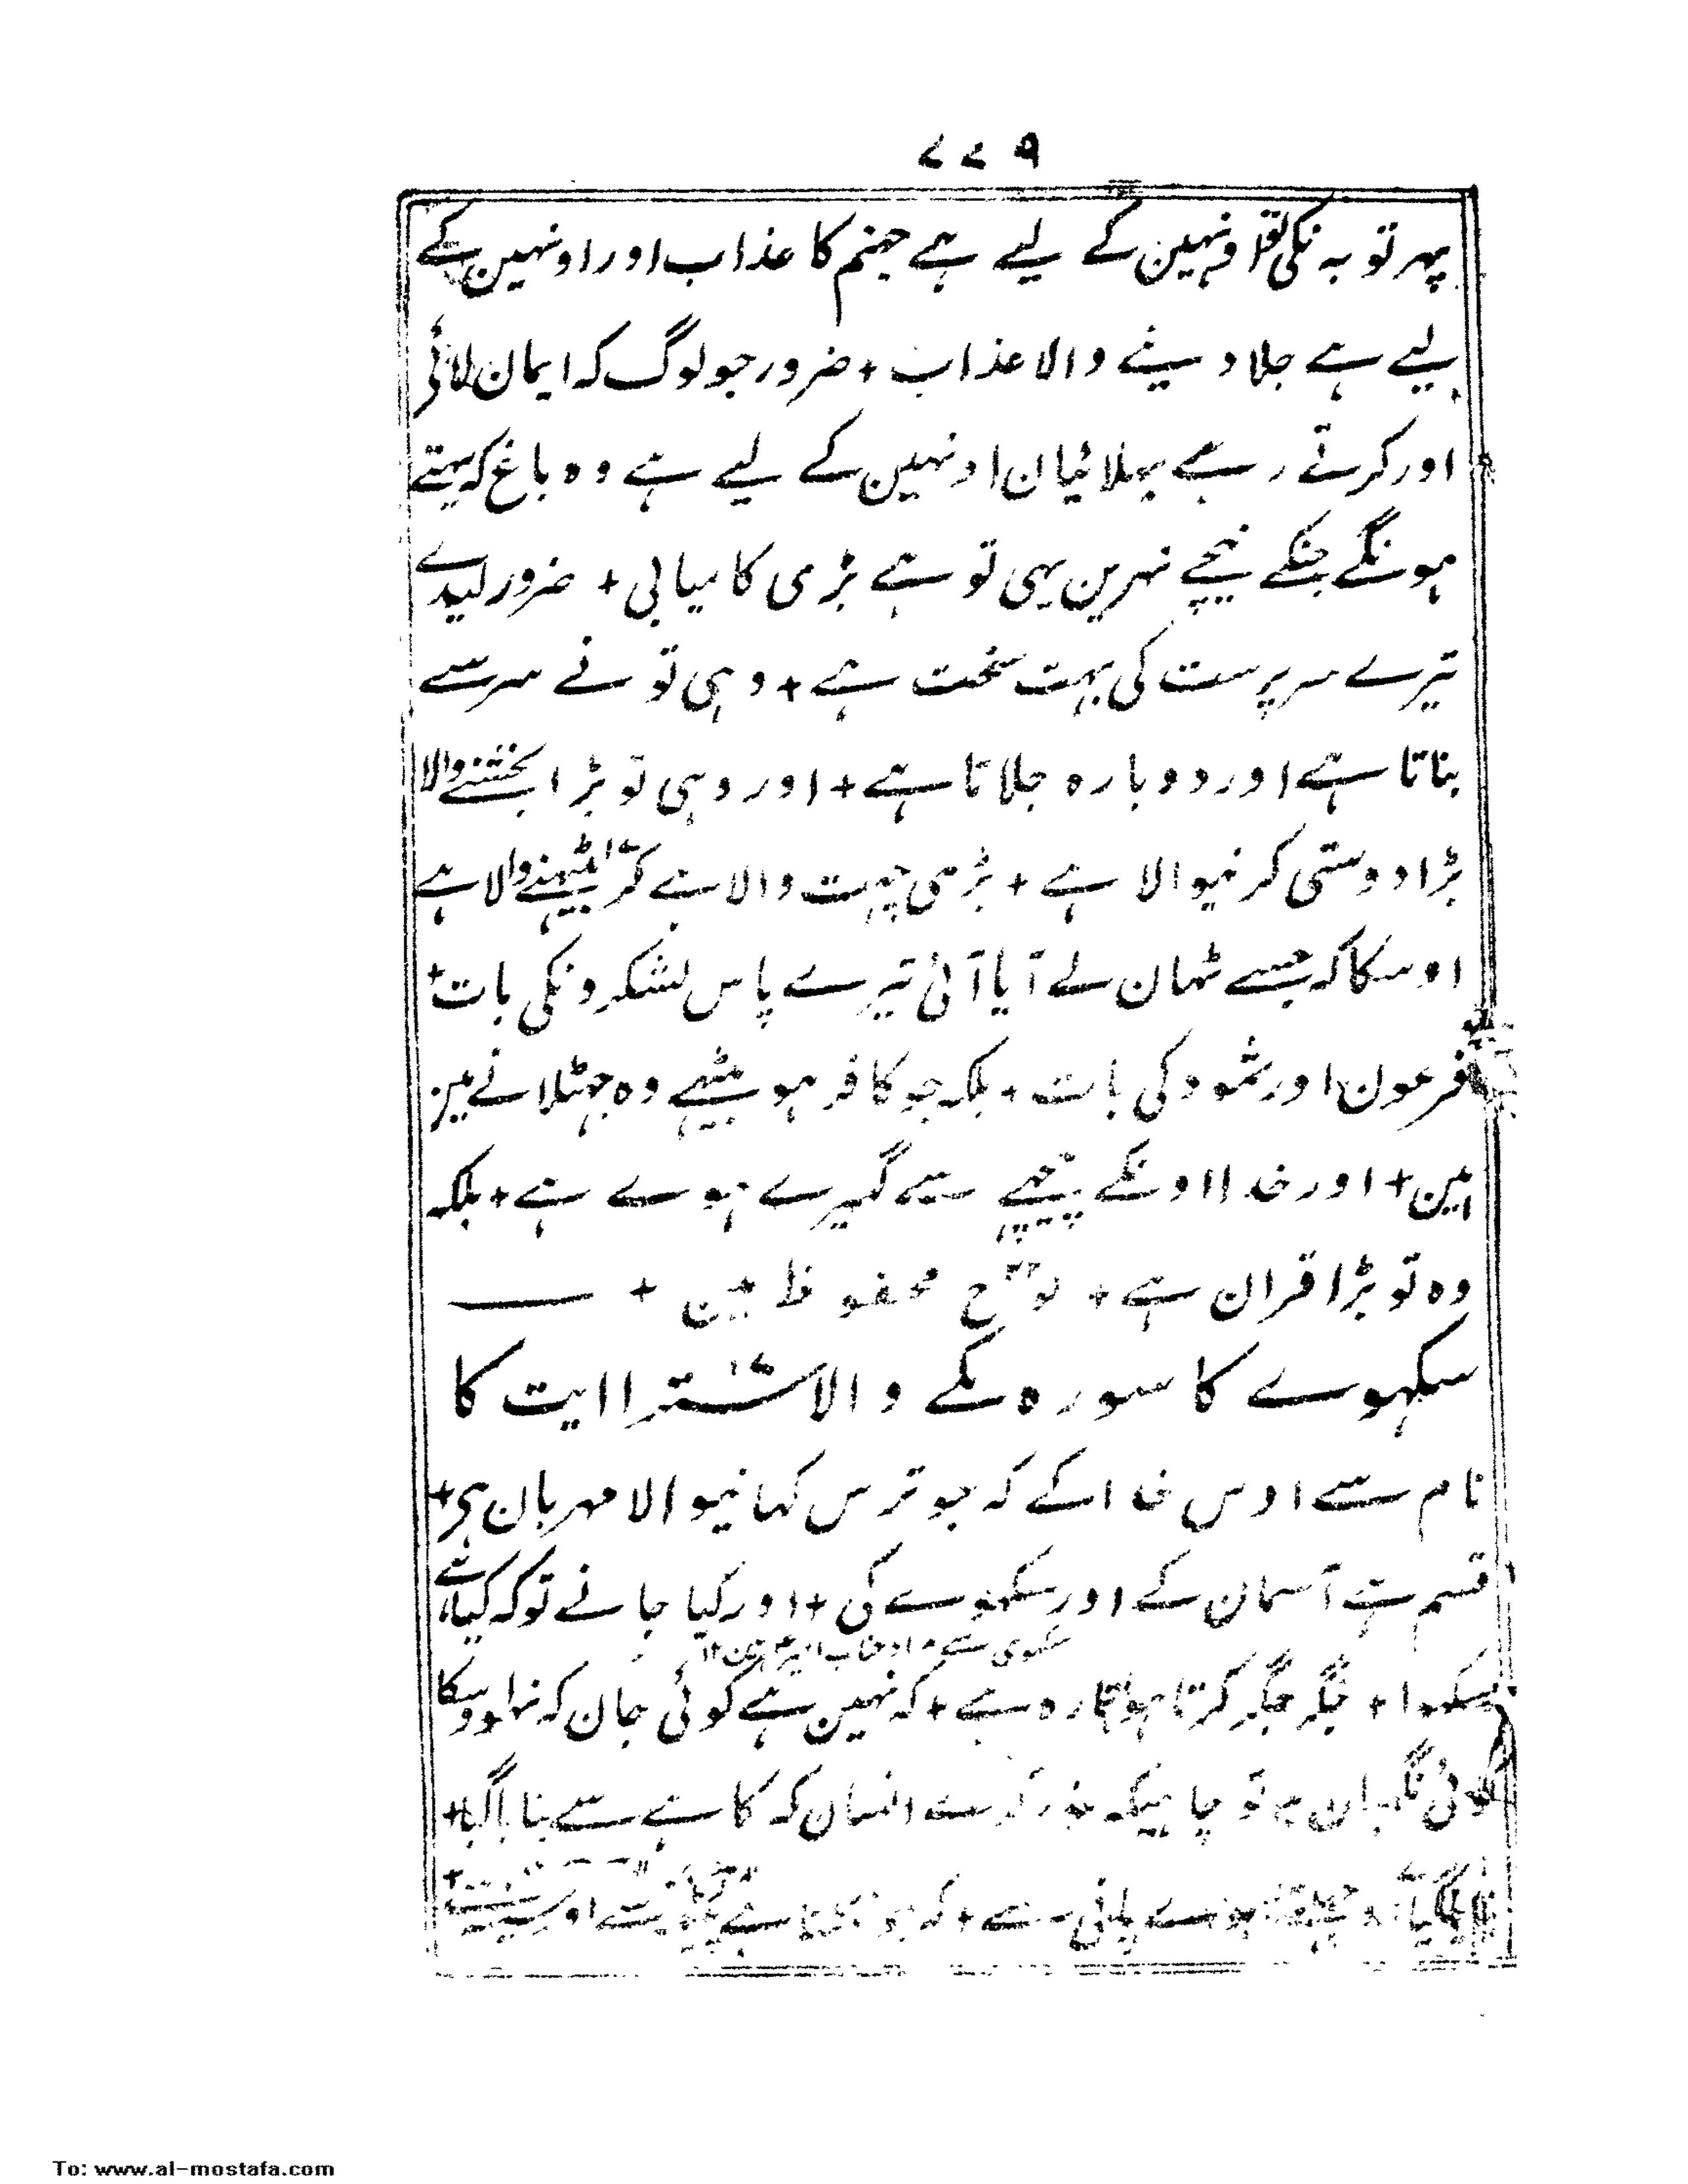 ۷۷۹
پہر توبہ نکی تو اونہین کے لیے ہے جہنم کا عذاب اور اونہین کے
لیے ہے جلا دینے والا عذاب + ضرور جو لوگ کہ ایمان لائی
اور کرتے رہے بہلائیان اونہین کے لیے ہے وہ باغ کہ بہتے
ہونگے جنکے نیچے نہرین یہی تو ہے بڑی کامیابی + ضرور لیدے
تیرے سرپرست کی بہت سخت ہے + وہی تو نے سرسے
بناتا ہے اور دوبارہ جلاتا ہے + اور وہی تو بڑا بخشنے والا
بڑا دوستی کرنیوالا ہے + بڑی چہت والا ہے کر بیٹہنے والا ہے
اوسکا کہ جسے ٹہان لے آیا آئی تیرے پاس لشکرونکی بات +
فرعون اور ثمود کی بات + بلکہ جو کافر ہو بیٹہے وہ جہٹلانے مین
ہین + اور خدا اونکے پیچہے سے گہیرے ہوے ہے + بلکہ
وہ تو بڑا قران ہے + لوح محفوظ مین +
سکہوے کا سورہ مکے والا سترا ایت کا
نام سے اوس خدا کے کہ جو ترس کہانیوالا مہربان ہی +
قسم ہے آسمان کے اور سکہوے کی + اور کیا جانے تو کہ کیا ہے
سکہوا + جگر جگر کرتا ہوا تارہ ہے + کہ نہین ہے کوئی جان کہ نہو اوسکا
کوئی نگہبان + تو چاہیکہ غور کرے انسان کہ کاہے سے بنایا گیا +
بنایا گیا ہوے پانی سے + کہ جو ہے
To: www.al-mostafa.com